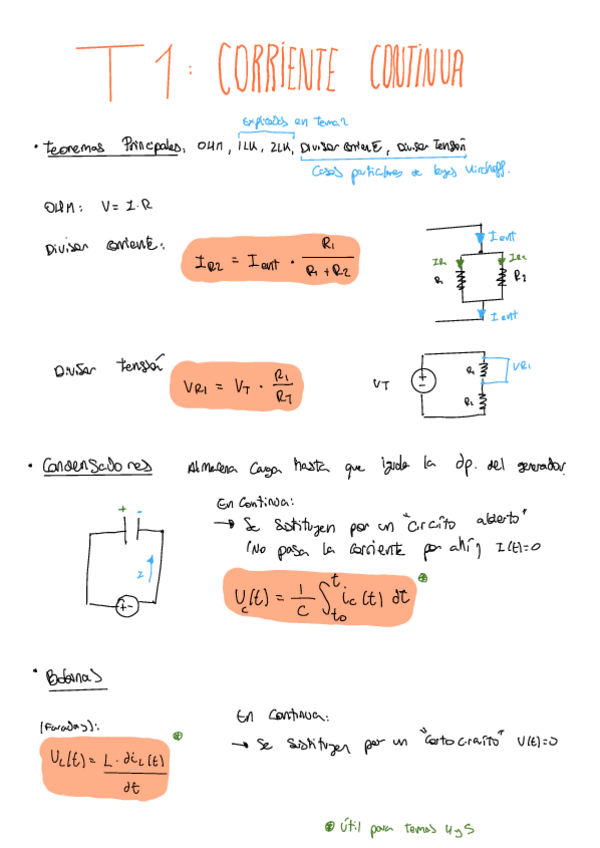 T 1 : CORRIENTE CONTINUA
explicados en tema 2
• Teoremas Principales: OHM, 1LK, 2LK, Divisor corriente, Divisor Tensión
Casos particulares de leyes Kirchoff.
OHM: V = I·R
Divisor corriente:
I_R2 = I_ent · R1 / (R1 + R2)
I ent
IR1
IR2
R1
R2
I ent
Divisor tensión
VR1 = VT · R1 / RT
VT
R1
VR1
R2
• Condensadores Almacena carga hasta que iguala la dp. del generador.
+ -
I
+ -
En Continua:
→ Se sustituyen por un "circuito abierto"
(No pasa la corriente por ahí) I(t)=0
Uc(t) = 1/C ∫ t t0 ic(t) dt
• Bobinas
(Faraday):
UL(t) = L · diL(t) / dt
En Continua:
→ Se sustituyen por un "cortocircuito" V(t)=0
útil para temas 4 y 5